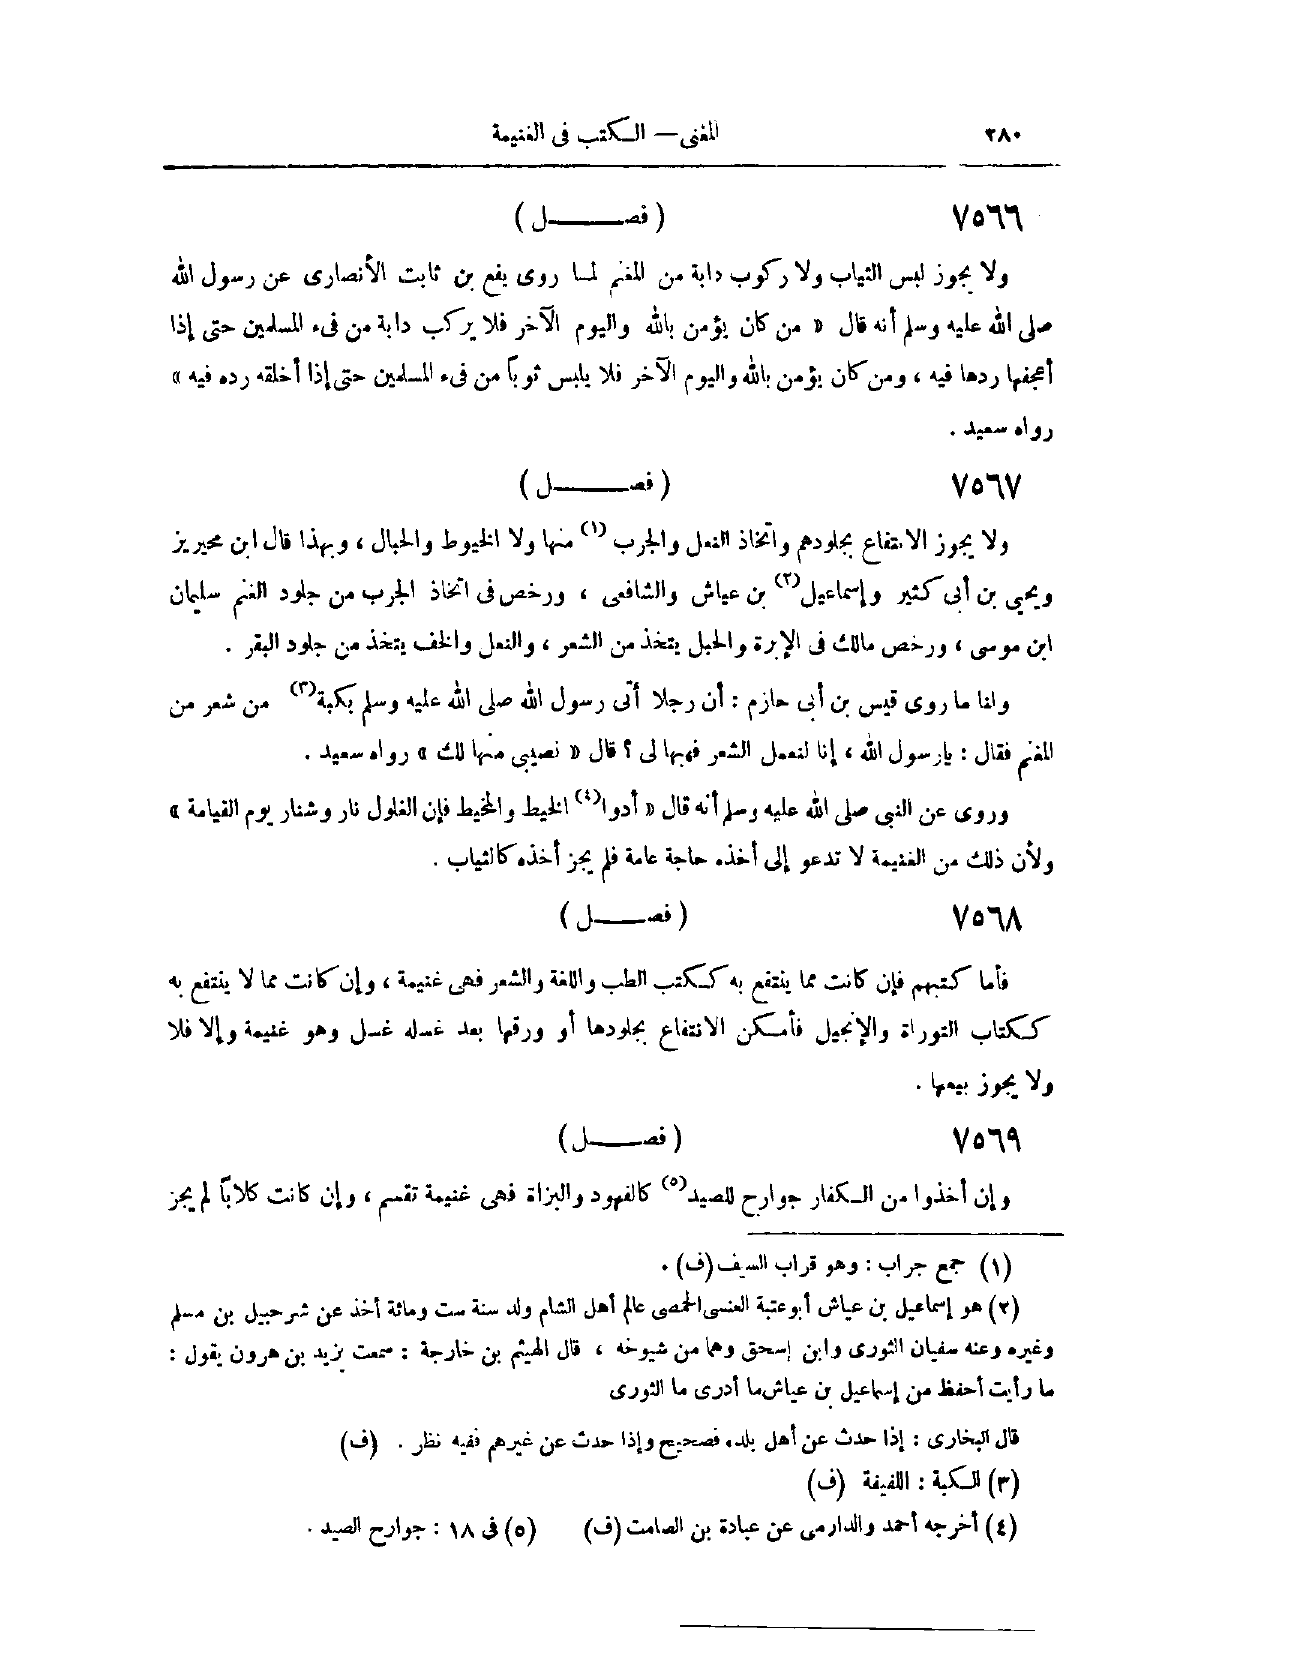 ٢٨٠
المغنى — الكتب فى الغنيمة
٧٥٦٦ ( فصـــــل )
ولا يجوز لبس الثياب ولا ركوب دابة من المغنم لما روى يفع بن ثابت الأنصارى عن رسول الله
صلى الله عليه وسلم أنه قال « من كان يؤمن بالله واليوم الآخر فلا يركب دابة من فىء المسلمين حتى إذا
أعجفها ردها فيه ، ومن كان يؤمن بالله واليوم الآخر فلا يلبس ثوباً من فىء المسلمين حتى إذا أخلقه رده فيه »
رواه سعيد .
٧٥٦٧ ( فصـــــل )
ولا يجوز الانتفاع بجلودهم واتخاذ النعل والجرب (١) منها ولا الخيوط والحبال ، وبهذا قال ابن محيريز
ويحيى بن أبى كثير وإسماعيل(٢) بن عياش والشافعى ، ورخص فى اتخاذ الجرب من جلود الغنم سليمان
ابن موسى ، ورخص مالك فى الإبرة والحبل يتخذ من الشعر ، والنعل والخف يتخذ من جلود البقر .
ولنا ما روى قيس بن أبى حازم : أن رجلا أتى رسول الله صلى الله عليه وسلم بكبة(٣) من شعر من
المغنم فقال : يارسول الله ، إنا لنعمل الشعر فهبها لى ؟ قال « نصيبى منها لك » رواه سعيد .
وروى عن النبى صلى الله عليه وسلم أنه قال « أدوا(٤) الخيط والمخيط فإن الغلول نار وشنار يوم القيامة »
ولأن ذلك من الغنيمة لا تدعو إلى أخذه حاجة عامة فلم يجز أخذه كالثياب .
٧٥٦٨ ( فصـــــل )
فأما كتبهم فإن كانت مما ينتفع به ككتب الطب واللغة والشعر فهى غنيمة ، وإن كانت مما لا ينتفع به
ككتاب التوراة والإنجيل فأمكن الانتفاع بجلودها أو ورقها بعد غسله غسل وهو غنيمة وإلا فلا
ولا يجوز بيعها .
٧٥٦٩ ( فصـــــل )
وإن أخذوا من الكفار جوارح للصيد(٥) كالفهود والبزاة فهى غنيمة تقسم ، وإن كانت كلاباً لم يجز
(١) جمع جراب : وهو قراب السيف (ف) .
(٢) هو إسماعيل بن عياش أبو عتبة العنسى الحمصى عالم أهل الشام ولد سنة ست ومائة أخذ عن شرحبيل بن مسلم
وغيره وعنه سفيان الثورى وابن إسحق وهما من شيوخه ، قال الهيثم بن خارجة : سمعت يزيد بن هرون يقول :
ما رأيت أحفظ من إسماعيل بن عياش ما أدرى ما الثورى
قال البخارى : إذا حدث عن أهل بلده فصحيح وإذا حدث عن غيرهم ففيه نظر . (ف)
(٣) الكبة : اللفيفة (ف)
(٤) أخرجه أحمد والدارمى عن عبادة بن الصامت (ف) (٥) فى ١٨ : جوارح الصيد .